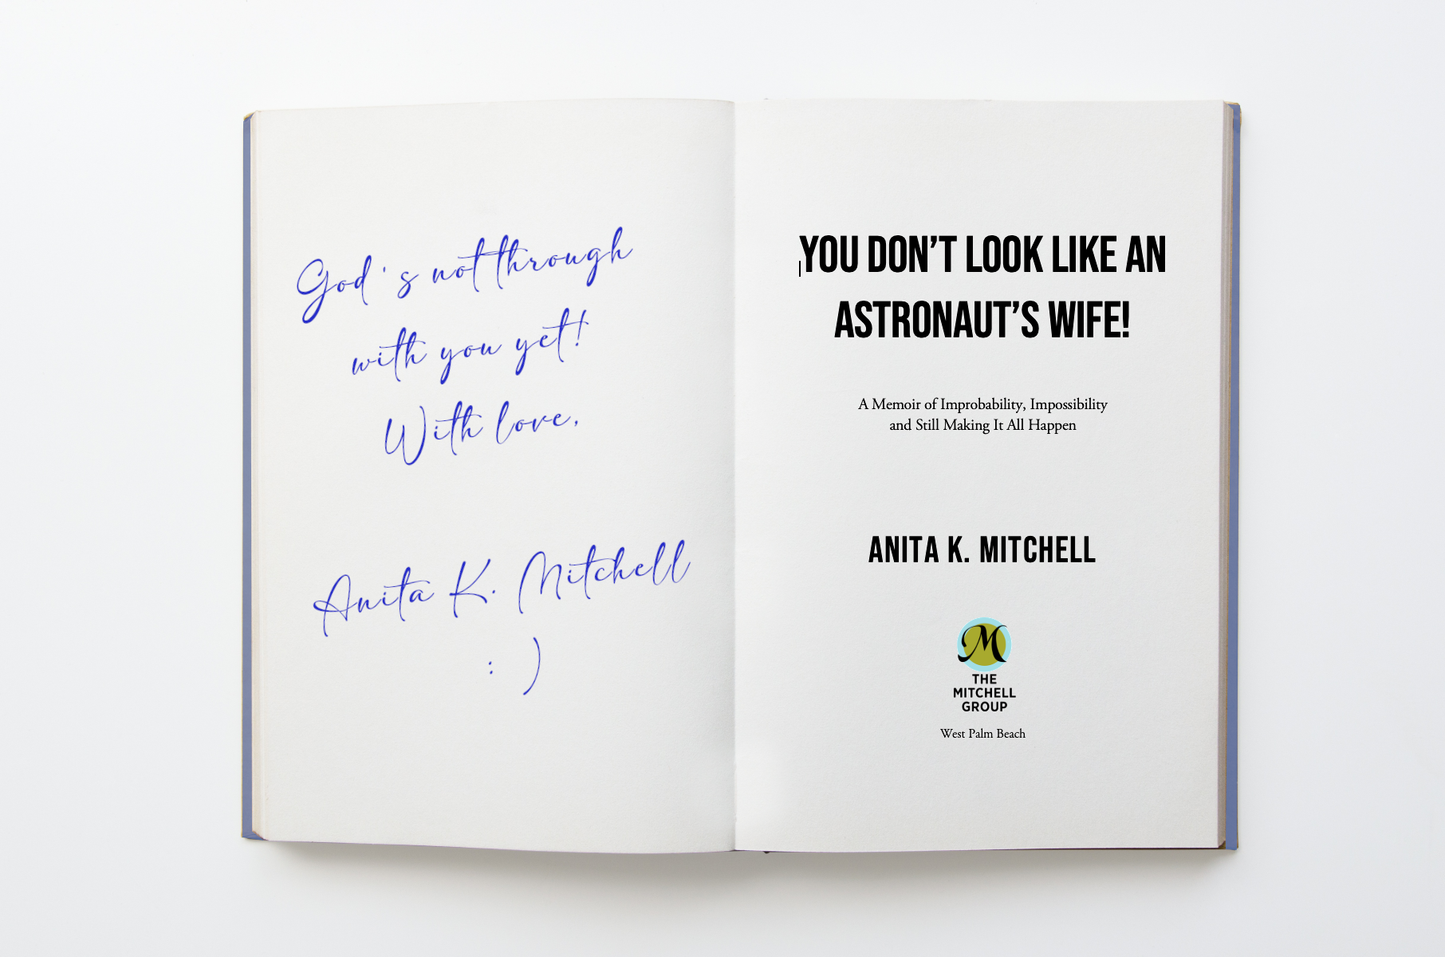 God's not through
with you yet!
With love,
Anita K. Mitchell
: )
YOU DON'T LOOK LIKE AN
ASTRONAUT'S WIFE!
A Memoir of Improbability, Impossibility
and Still Making It All Happen
ANITA K. MITCHELL
M
THE
MITCHELL
GROUP
West Palm Beach